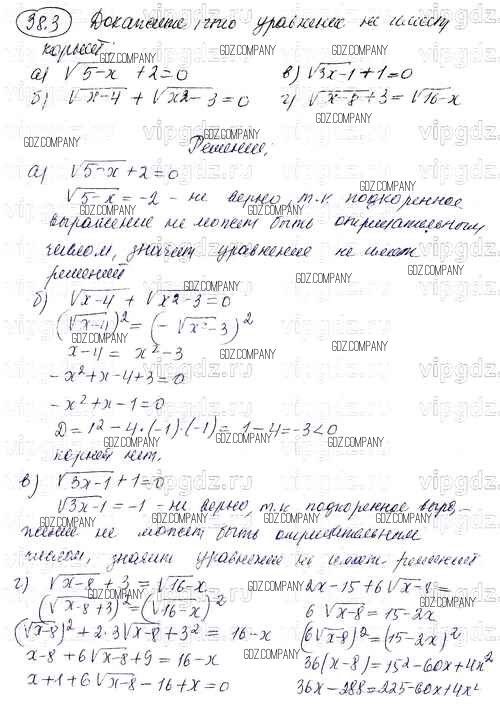 38.3 Докажите, что уравнение не имеет
корней:
а) √5-x + 2=0 в) √3x-1 + 1=0
б) √x-4 + √x²-3 = 0 г) √x-8 + 3 = √16-x
Решение:
а) √5-x + 2=0
√5-x = -2 - не верно, т.к. подкоренное
выражение не может быть отрицательным
числом, значит уравнение не имеет
решений
б) √x-4 + √x²-3 = 0
(√x-4)² = (-√x²-3)²
x-4 = x²-3
-x²+x-4+3=0
-x²+x-1=0
D=1²-4·(-1)·(-1)= 1-4=-3<0
корней нет.
в) √3x-1 + 1=0
√3x-1 = -1 - не верно, т.к подкоренное выра-
жение не может быть отрицательным
числом, значит уравнение не имеет решений
г) √x-8 + 3 = √16-x
(√x-8+3)² = (√16-x)²
(√x-8)² + 2·3√x-8 + 3² = 16-x
x-8+6√x-8+9=16-x
x+1+6√x-8-16+x=0
2x-15+6√x-8=
6√x-8=15-2x
(6√x-8)²=(15-2x)²
36(x-8)=15²-60x+4x²
36x-288=225-60x+4x²